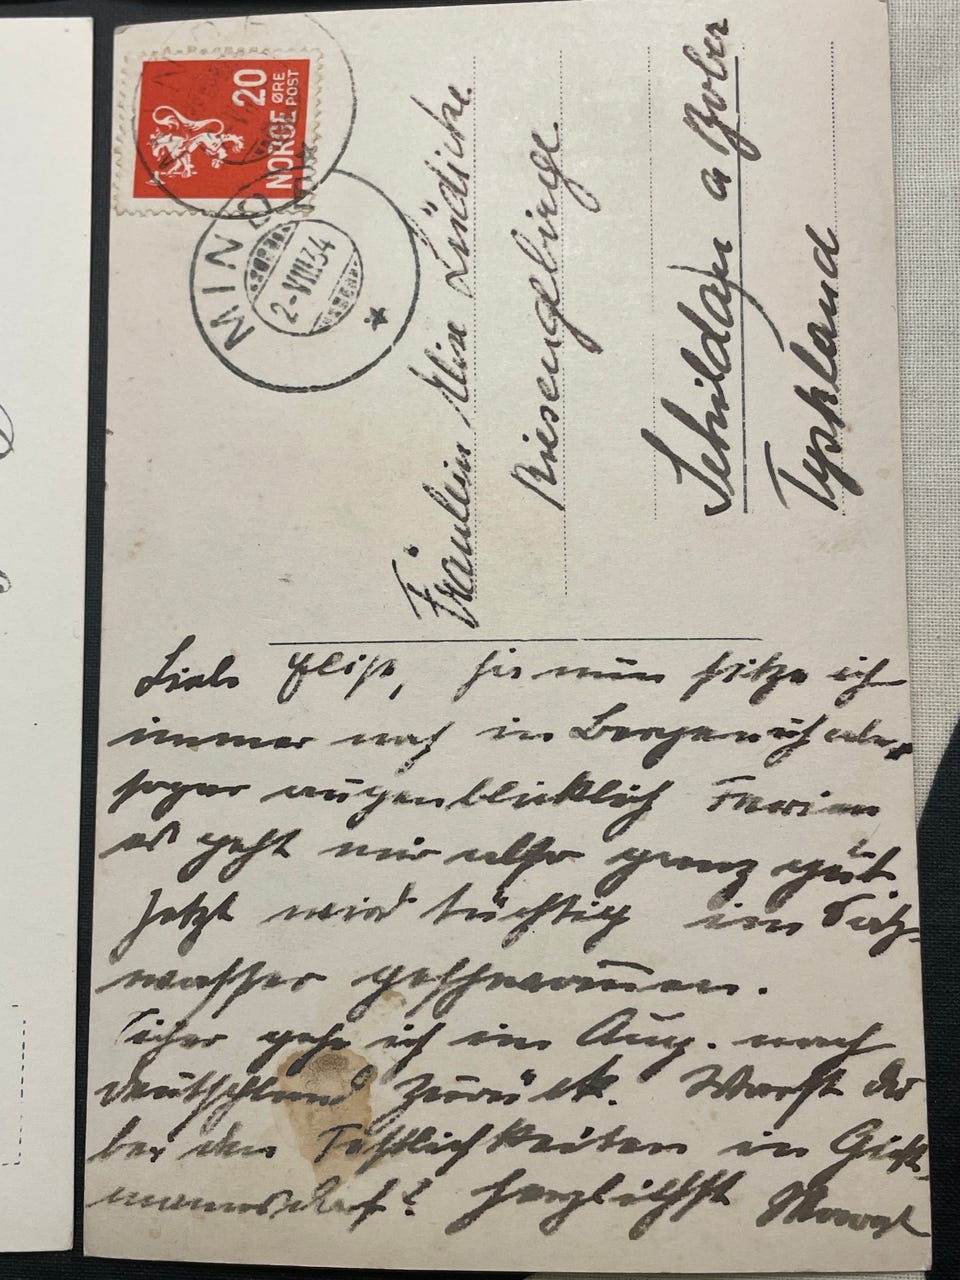 NORGE
20
ØRE
POST
MINDE
2-VIII 34
Fräulein Elise Lüdicke
Riesengebirge.
Schildau a Bober
Tyskland
Liebe Elise, hier nun sitze ich
immer noch in Bergen
sogar augenblicklich Ferien
es geht mir also ganz gut.
Jetzt wird tüchtig im
wasser geschwommen.
gehe ich im Aug. nach
Deutschland zurück. Warst du
bei den Festlichkeiten in
? Herzlichst